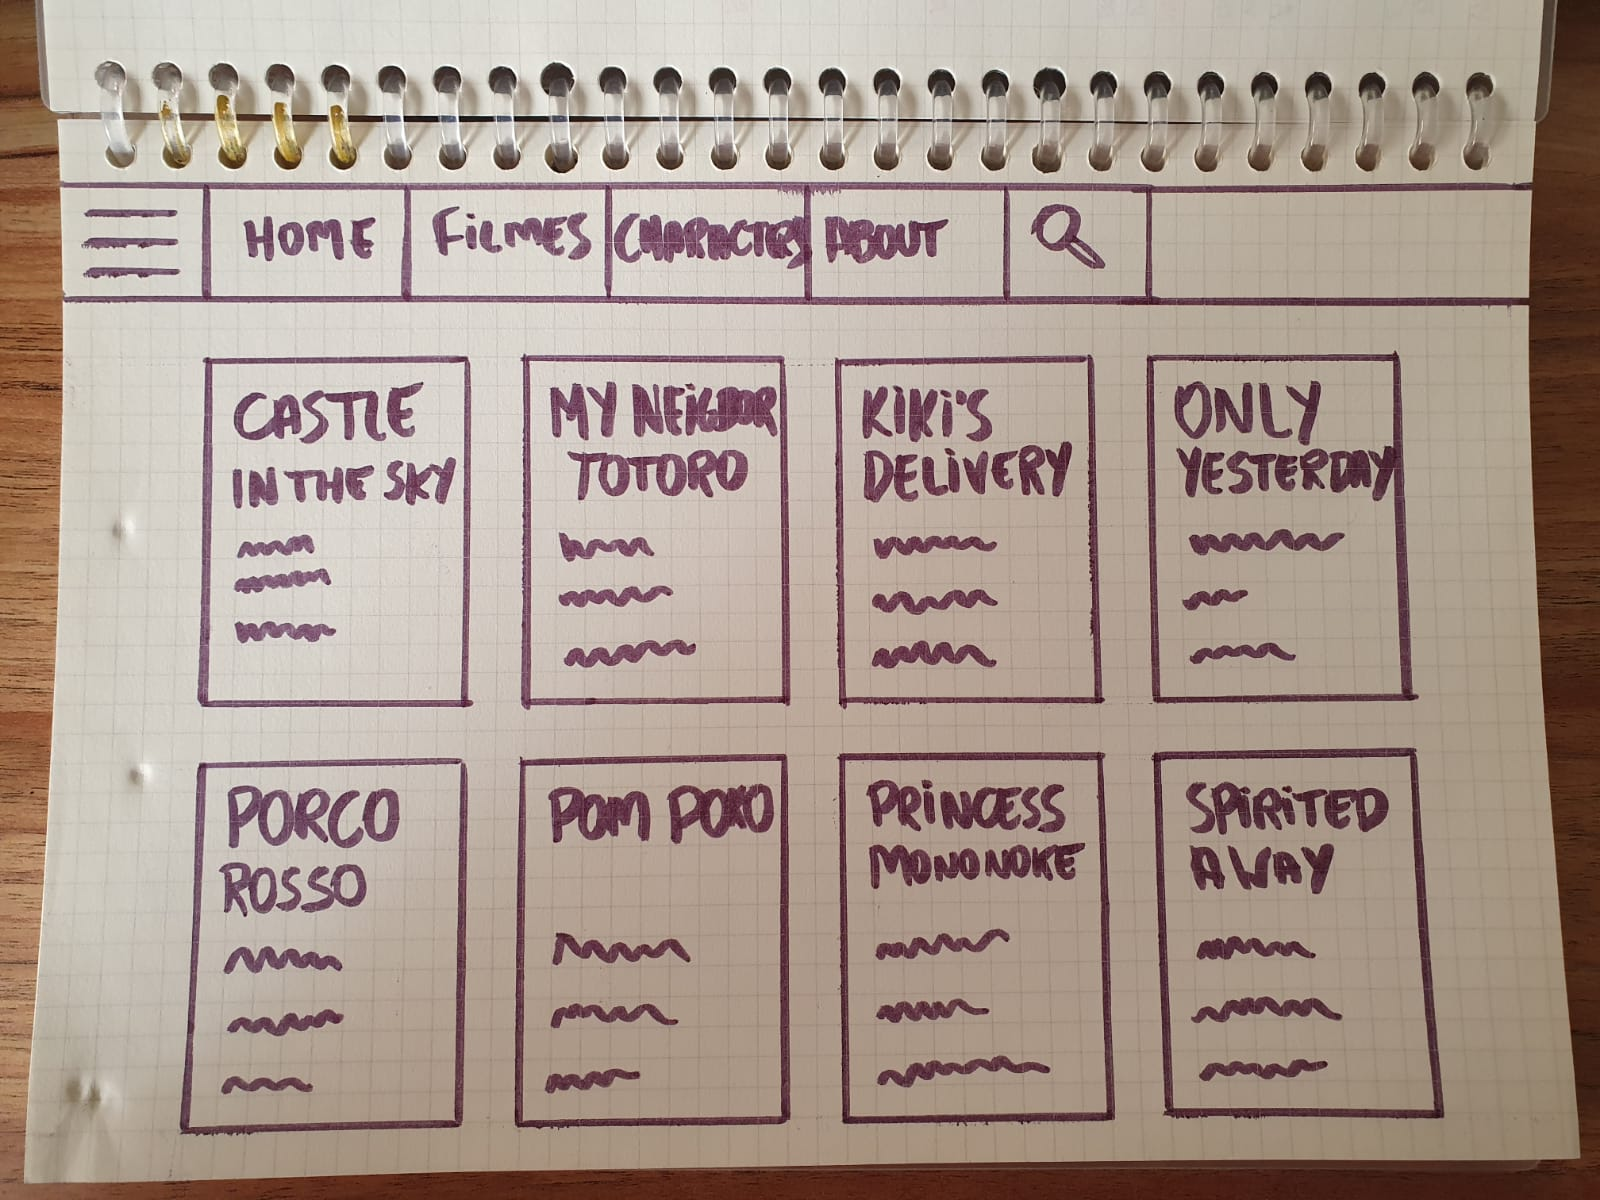 HOME FILMES CHARACTERS ABOUT
CASTLE
IN THE SKY
MY NEIGBOR
TOTORO
KIKI'S
DELIVERY
ONLY
YESTERDAY
PORCO
ROSSO
POM POKO
PRINCESS
MONONOKE
SPIRITED
AWAY